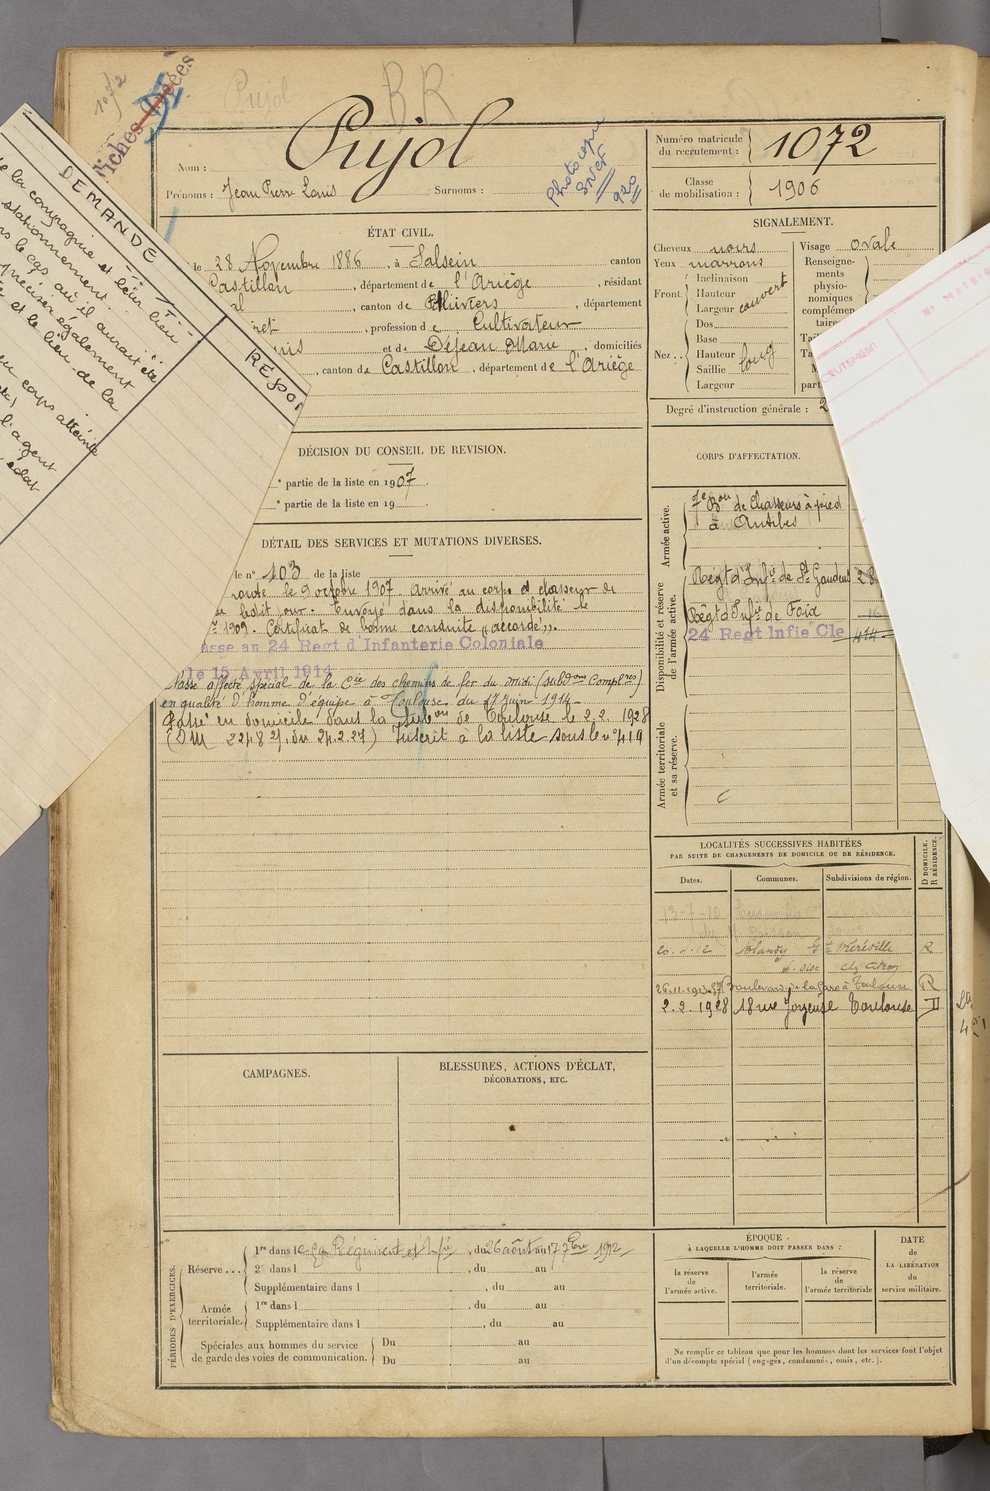 1072
Fiches
Pujol
B.R
DEMANDE
RÉPON
de la compagnie et leur lieu
stationnement.
le cas où il aurait été
préciser également
et le lieu de la
corps atteinte
l'agent
éclat
Nom : Pujol
Prénoms : Jean Pierre Louis Surnoms :
Photocopie
920
Numéro matricule du recrutement : 1072
Classe de mobilisation : 1906
ÉTAT CIVIL.
le 28 Novembre 1886, à Salsein canton
Castillon, département de l'Ariège, résidant
, canton de département
, profession de Cultivateur
et de Dejean Marie, domiciliés
, canton de Castillon, département de l'Ariège
SIGNALEMENT.
Cheveux noirs
Yeux marrons
Front. Inclinaison
Hauteur
Largeur couvert
Nez.. Dos
Base
Hauteur long
Saillie
Largeur
Visage ovale
Renseigne-
ments
physio-
nomiques
complémen
taire
Degré d'instruction générale : 2
DÉCISION DU CONSEIL DE REVISION.
e partie de la liste en 1907.
e partie de la liste en 19
CORPS D'AFFECTATION.
Armée active.
7e Bon de Chasseurs à pied
à Antibes
Disponibilité et réserve de l'armée active.
Régt d'Infie de St Gaudens
Régt d'Infie de Foix
24 Regt Infie Cle
Armée territoriale et sa réserve.
DÉTAIL DES SERVICES ET MUTATIONS DIVERSES.
le n° 103 de la liste
route le 9 octobre 1907. Arrivé au corps et chasseur de
ledit jour. Envoyé dans la disponibilité le
1909. Certificat de bonne conduite "accordé".
asse au 24 Regt d'Infanterie Coloniale
le 15 Avril 1914
Classé affecté spécial de la Cie des chemins de fer du Midi (subdons Complres)
en qualité d'homme d'équipe à Toulouse du 17 juin 1914
Passé en domicile dans la Subon de Toulouse le 2.2.1928
(DM 2248 2/ du 24.2.27) Inscrit à la liste sous le n° 419
LOCALITÉS SUCCESSIVES HABITÉES
PAR SUITE DE CHANGEMENTS DE DOMICILE OU DE RÉSIDENCE.
Dates. Communes. Subdivisions de région. D DOMICILE. R RÉSIDENCE.
13-7-10
Blandy Méréville R
26.11.1913 Boulevard de la Gare à Toulouse R
2.2.1928 18 rue Joyeuse Toulouse D
CAMPAGNES.
BLESSURES, ACTIONS D'ÉCLAT,
DÉCORATIONS, ETC.
PÉRIODES D'EXERCICES.
Réserve... 1re dans le Régiment d'Infie, du 26 août au 17 7bre 1912
2e dans l , du au
Supplémentaire dans l , du au
Armée territoriale. 1re dans l , du au
Supplémentaire dans l , du au
Spéciales aux hommes du service de garde des voies de communication. Du au
Du au
ÉPOQUE
À LAQUELLE L'HOMME DOIT PASSER DANS :
la réserve de l'armée active.
l'armée territoriale.
la réserve de l'armée territoriale
DATE de LA LIBÉRATION du service militaire.
Ne remplir ce tableau que pour les hommes dont les services font l'objet
d'un décompte spécial (engagés, condamnés, omis, etc.).